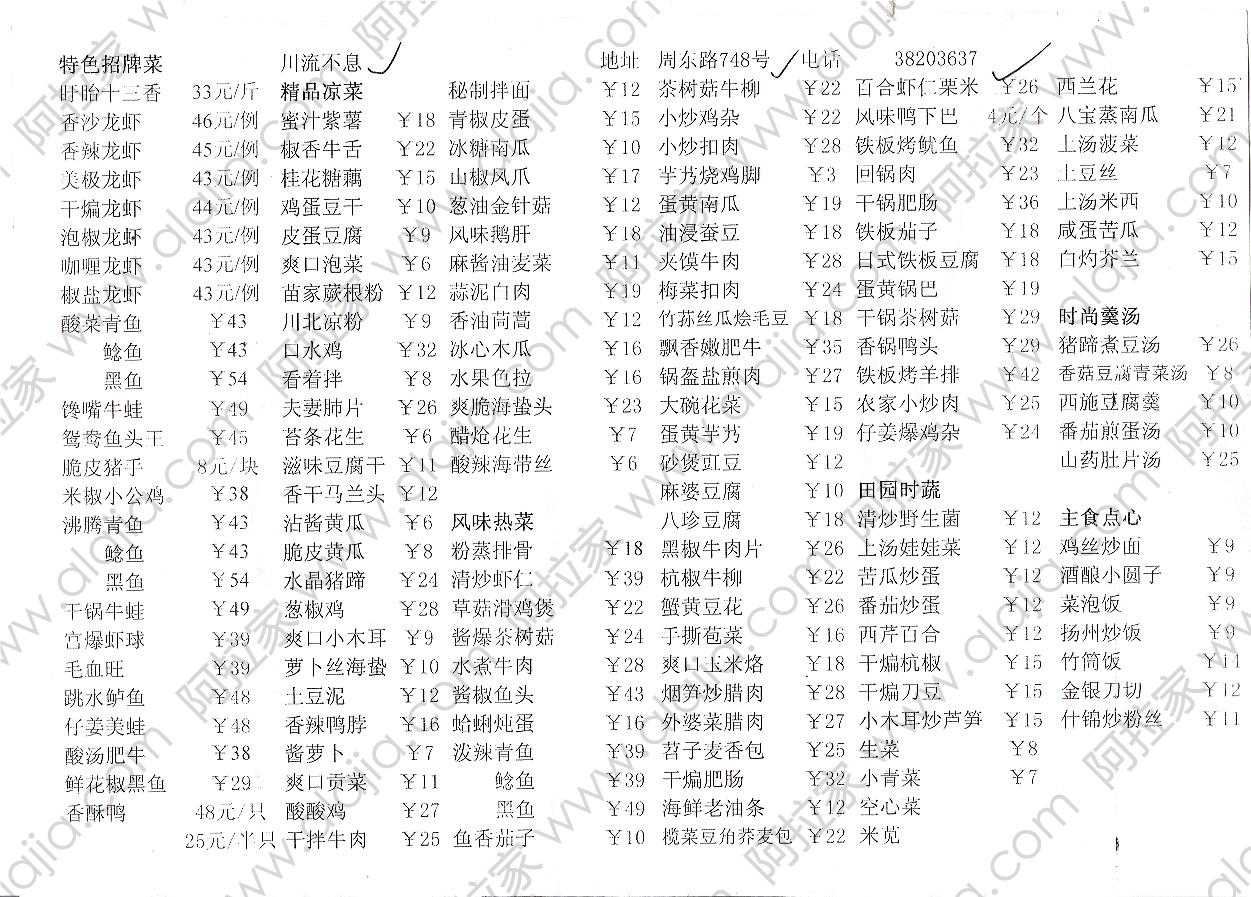 特色招牌菜 川流不息 地址 周东路748号 电话 38203637
盱眙十三香 33元/斤 精品凉菜 秘制拌面 ¥12 茶树菇牛柳 ¥22 百合虾仁栗米 ¥26 西兰花 ¥15
香沙龙虾 46元/例 蜜汁紫薯 ¥18 青椒皮蛋 ¥15 小炒鸡杂 ¥22 风味鸭下巴 4元/个 八宝蒸南瓜 ¥21
香辣龙虾 45元/例 椒香牛舌 ¥22 冰糖南瓜 ¥10 小炒扣肉 ¥28 铁板烤鱿鱼 ¥32 上汤菠菜 ¥12
美极龙虾 43元/例 桂花糖藕 ¥15 山椒凤爪 ¥17 芋艿烧鸡脚 ¥3 回锅肉 ¥23 土豆丝 ¥7
干煸龙虾 44元/例 鸡蛋豆干 ¥10 葱油金针菇 ¥12 蛋黄南瓜 ¥19 干锅肥肠 ¥36 上汤米西 ¥10
泡椒龙虾 43元/例 皮蛋豆腐 ¥9 风味鹅肝 ¥18 油浸蚕豆 ¥18 铁板茄子 ¥18 咸蛋苦瓜 ¥12
咖喱龙虾 43元/例 爽口泡菜 ¥6 麻酱油麦菜 ¥11 夹馍牛肉 ¥28 日式铁板豆腐 ¥18 白灼芥兰 ¥15
椒盐龙虾 43元/例 苗家蕨根粉 ¥12 蒜泥白肉 ¥19 梅菜扣肉 ¥24 蛋黄锅巴 ¥19
酸菜青鱼 ¥43 川北凉粉 ¥9 香油茼蒿 ¥12 竹荪丝瓜烩毛豆 ¥18 干锅茶树菇 ¥29 时尚羹汤
鲶鱼 ¥43 口水鸡 ¥32 冰心木瓜 ¥16 飘香嫩肥牛 ¥35 香锅鸭头 ¥29 猪蹄煮豆汤 ¥26
黑鱼 ¥54 看着拌 ¥8 水果色拉 ¥16 锅盔盐煎肉 ¥27 铁板烤羊排 ¥42 香菇豆腐青菜汤 ¥8
馋嘴牛蛙 ¥49 夫妻肺片 ¥26 爽脆海蛰头 ¥23 大碗花菜 ¥15 农家小炒肉 ¥25 西施豆腐羹 ¥10
鸳鸯鱼头王 ¥45 苔条花生 ¥6 醋炝花生 ¥7 蛋黄芋艿 ¥19 仔姜爆鸡杂 ¥24 番茄煎蛋汤 ¥10
脆皮猪手 8元/块 滋味豆腐干 ¥11 酸辣海带丝 ¥6 砂煲豇豆 ¥12 山药肚片汤 ¥25
米椒小公鸡 ¥38 香干马兰头 ¥12 麻婆豆腐 ¥10 田园时蔬
沸腾青鱼 ¥43 沾酱黄瓜 ¥6 风味热菜 八珍豆腐 ¥18 清炒野生菌 ¥12 主食点心
鲶鱼 ¥43 脆皮黄瓜 ¥8 粉蒸排骨 ¥18 黑椒牛肉片 ¥26 上汤娃娃菜 ¥12 鸡丝炒面 ¥9
黑鱼 ¥54 水晶猪蹄 ¥24 清炒虾仁 ¥39 杭椒牛柳 ¥22 苦瓜炒蛋 ¥12 酒酿小圆子 ¥9
干锅牛蛙 ¥49 葱椒鸡 ¥28 草菇滑鸡煲 ¥22 蟹黄豆花 ¥26 番茄炒蛋 ¥12 菜泡饭 ¥9
宫爆虾球 ¥39 爽口小木耳 ¥9 酱爆茶树菇 ¥24 手撕苞菜 ¥16 西芹百合 ¥12 扬州炒饭 ¥9
毛血旺 ¥39 萝卜丝海蛰 ¥10 水煮牛肉 ¥28 爽口玉米烙 ¥18 干煸杭椒 ¥15 竹筒饭 ¥14
跳水鲈鱼 ¥48 土豆泥 ¥12 酱椒鱼头 ¥43 烟笋炒腊肉 ¥28 干煸刀豆 ¥15 金银刀切 ¥12
仔姜美蛙 ¥48 香辣鸭脖 ¥16 蛤蜊炖蛋 ¥16 外婆菜腊肉 ¥27 小木耳炒芦笋 ¥15 什锦炒粉丝 ¥11
酸汤肥牛 ¥38 酱萝卜 ¥7 泼辣青鱼 ¥39 苕子麦香包 ¥25 生菜 ¥8
鲜花椒黑鱼 ¥29 爽口贡菜 ¥11 鲶鱼 ¥39 干煸肥肠 ¥32 小青菜 ¥7
香酥鸭 48元/只 酸酸鸡 ¥27 黑鱼 ¥49 海鲜老油条 ¥12 空心菜
25元/半只 干拌牛肉 ¥25 鱼香茄子 ¥10 榄菜豆角荞麦包 ¥22 米苋
阿拉家 www.alajia.com